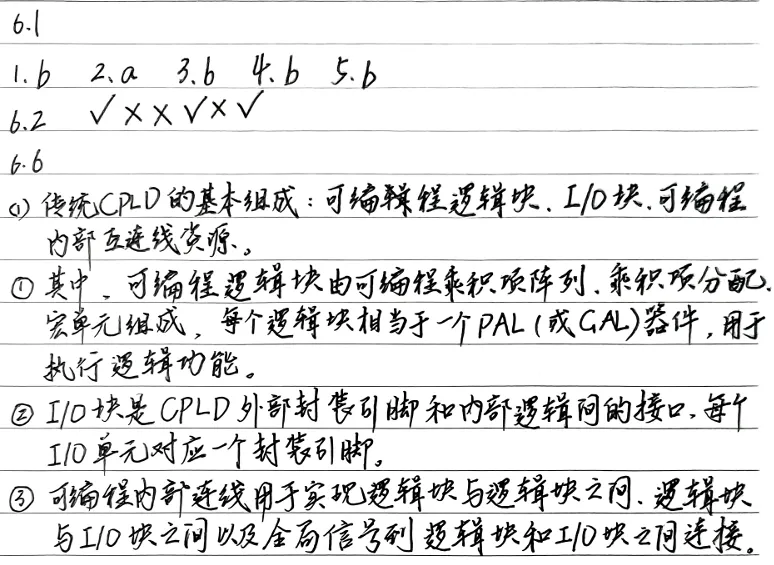 6.1
1.b 2.a 3.b 4.b 5.b
6.2 ✓ × × ✓ × ✓
6.6
(1) 传统CPLD的基本组成：可编程逻辑块、I/O块、可编程
内部互连线资源。
① 其中，可编程逻辑块由可编程乘积项阵列、乘积项分配、
宏单元组成，每个逻辑块相当于一个PAL(或GAL)器件，用于
执行逻辑功能。
② I/O块是CPLD外部封装引脚和内部逻辑间的接口，每个
I/O单元对应一个封装引脚。
③ 可编程内部连线用于实现逻辑块与逻辑块之间、逻辑块
与I/O块之间以及全局信号到逻辑块和I/O块之间连接。